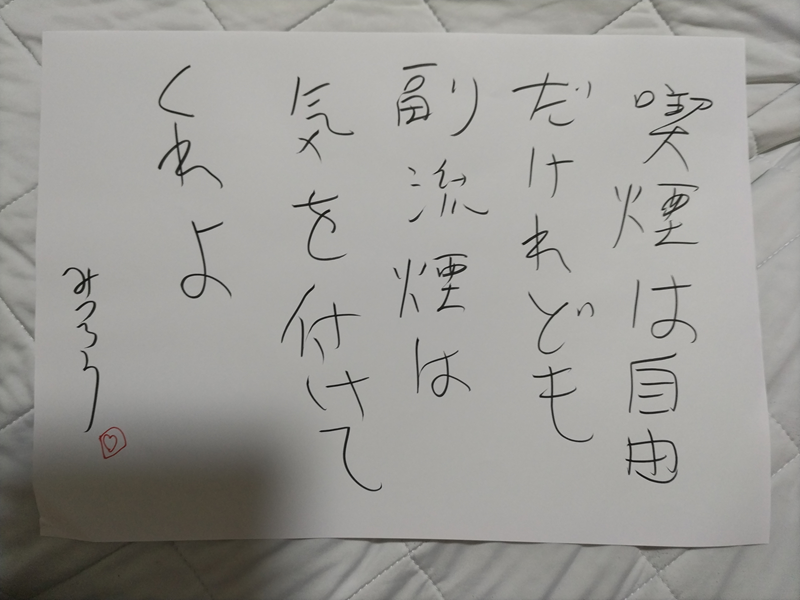 喫煙は自由
だけれども
副流煙は
気を付けて
くれよ
みつろう